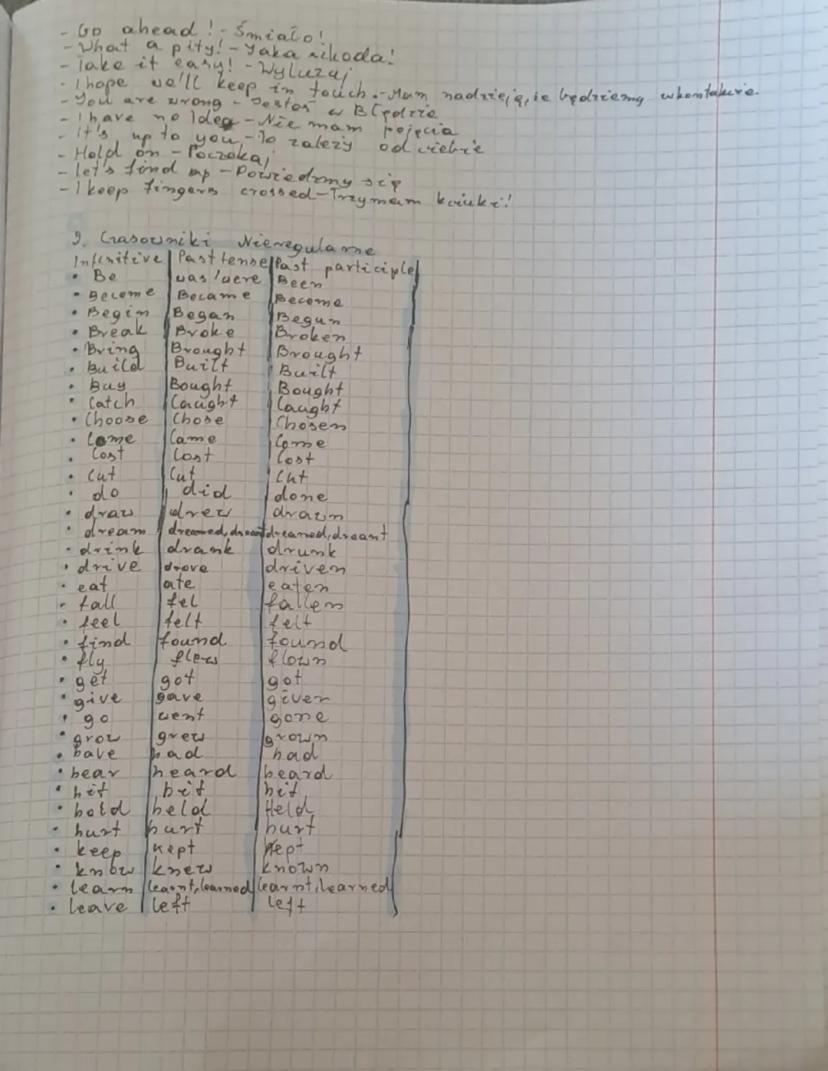 - Go ahead! - Śmiało!
- What a pity! - Jaka szkoda!
- Take it easy! - Wyluzuj
- I hope we'll keep in touch. - Mam nadzieję, że będziemy w kontakcie.
- You are wrong - Jesteś w Błędzie
- I have no Idea - Nie mam pojęcia
- It's up to you - To zależy od ciebie
- Hold on - Poczekaj
- Let's find up - Powiedzmy się
- I keep fingers crossed - Trzymam kciuki!
9. Czasowniki Nieregularne
Infinitive | Past tense | Past participle
• Be was/were Been
• Become Became Become
• Begin Began Begun
• Break Broke Broken
• Bring Brought Brought
• Build Built Built
• Buy Bought Bought
• Catch Caught Caught
• Choose Chose Chosen
• Come Came Come
• Cost Cost Cost
• Cut Cut Cut
• do did done
• draw drew drawn
• dream dreamed, dreamt dreamed, dreamt
• drink drank drunk
• drive drove driven
• eat ate eaten
• fall fel fallen
• feel felt felt
• find found found
• fly flew flown
• get got got
• give gave given
• go went gone
• grow grew grown
• have had had
• hear heard heard
• hit hit hit
• hold held Held
• hurt hurt hurt
• keep kept kept
• know knew known
• learn learnt, learned learnt, learned
• leave left left